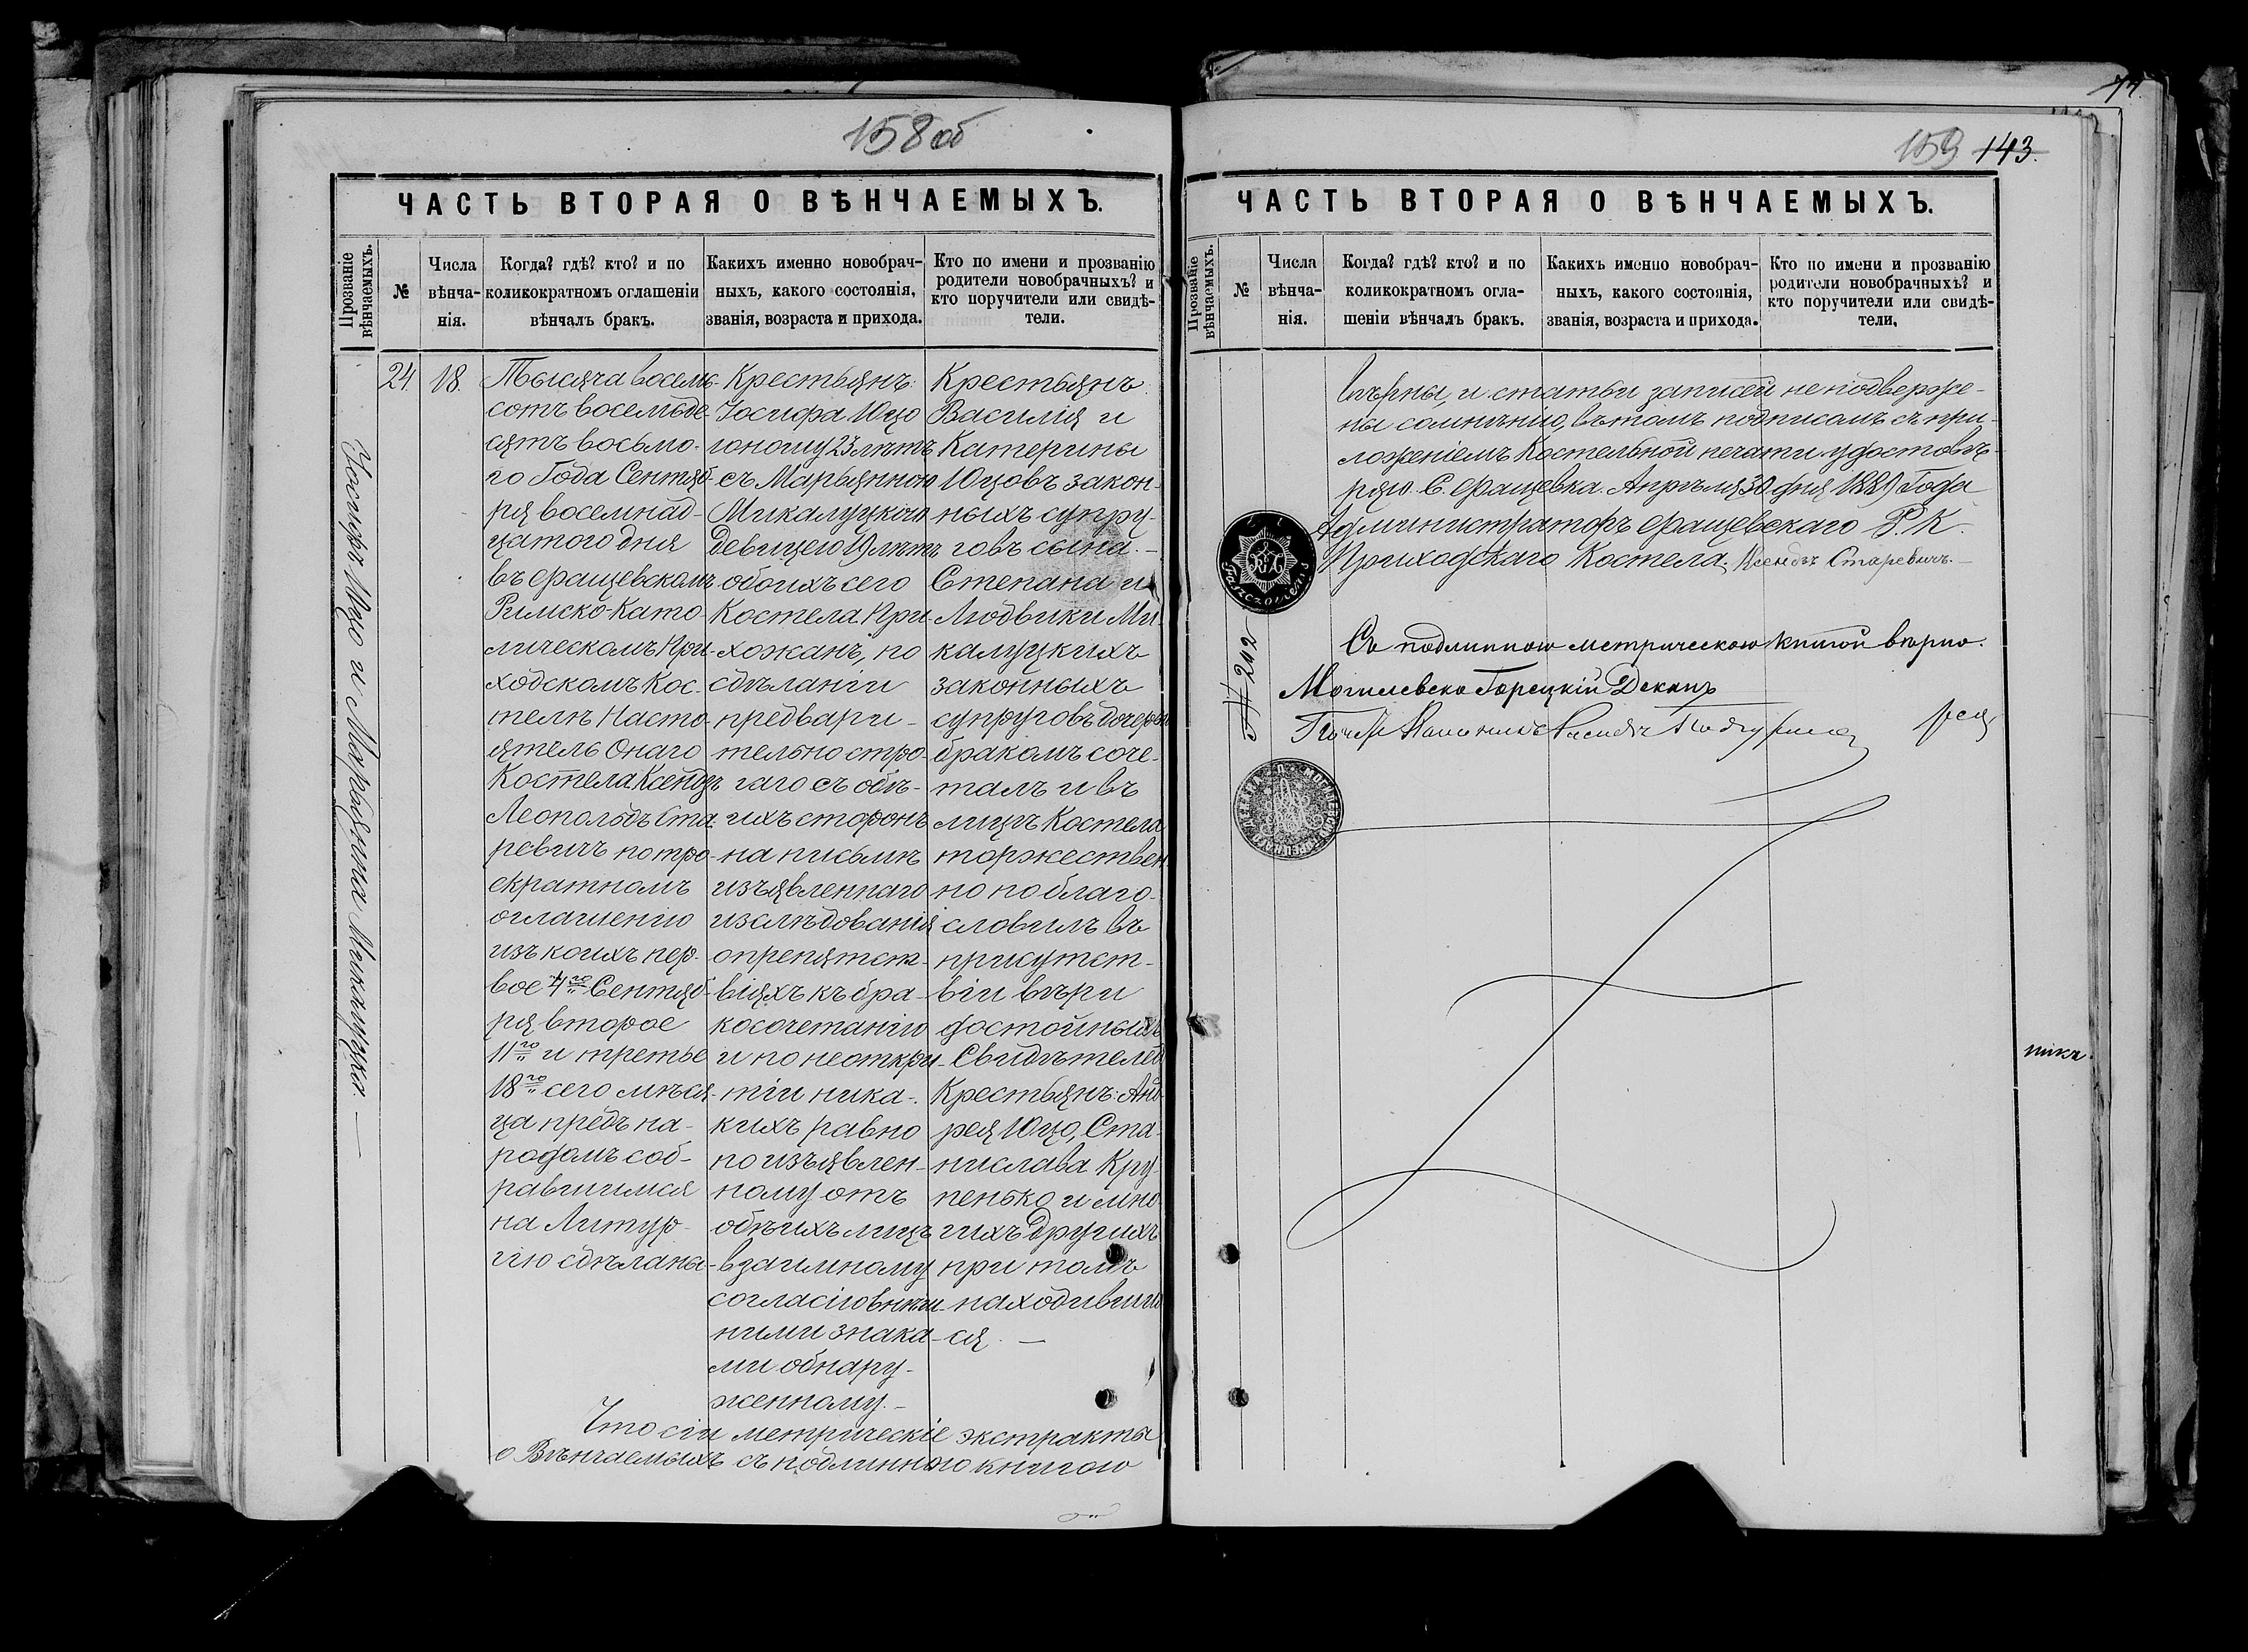 158 об
ЧАСТЬ ВТОРАЯ О ВѢНЧАЕМЫХЪ.
Прозваніе вѣнчаемыхъ.
№
Числа вѣнча-
нія.
Когда? гдѣ? кто? и по
коликократномъ оглашеніи
вѣнчалъ бракъ.
Какихъ именно новобрач-
ныхъ, какого состоянія,
званія, возраста и прихода.
Кто по имени и прозванію
родители новобрачныхъ? и
кто поручители или свидѣ-
тели.
Іосифъ Юцо и Марьянна Микалуцкая. —
24.
18.
Тысяча восемь-
сотъ восемьде-
сятъ восьмо-
го Года Сентяб-
ря восемнад-
цатого дня
въ Фащевскомъ
Римско-Като-
лическомъ При-
ходскомъ Кос-
телѣ Насто-
ятель Онаго
Костела Ксендзъ
Леопольдъ Ста-
ревичъ по тро-
екратномъ
оглашенію
изъ коихъ пер-
вое 4го Сентяб-
ря второе
11го и третье
18го сего мѣся-
ца предъ на-
родомъ соб-
равшимся
на Литур-
гію сдѣланы-
Крестьянъ:
Іосифа Юцо
юношу 23 лѣтъ
съ Марьянною
Микалуцкою
девицею 19 лѣтъ
обоихъ сего
Костела При-
хожанъ, по
сдѣланіи
предвари-
тельно стро-
гаго съ обѣ-
ихъ сторонъ
на письмѣ
изъявленнаго
изслѣдованія
о препятст-
віяхъ къ бра-
косочетанію
и по неоткры-
тіи ника-
кихъ равно
по изъявлен-
ному отъ
обѣихъ лицъ
взаимному
согласію внѣш-
ними знака-
ми обнару-
женному. —
Крестьянъ
Василія и
Катерины
Юцовъ закон-
ныхъ супру-
говъ сына. —
Степана и
Людвики Ми-
калуцкихъ
законныхъ
супруговъ дочерью
бракомъ соче-
талъ и въ
лицѣ Костела
торжествен-
но поблаго-
словилъ въ
присутст-
віи вѣри
достойныхъ
Свидѣтелей
Крестьянъ: Анд-
рея Юцо, Ста-
нислава Кру-
пенько и мно-
гихъ другихъ
при томъ
находивших-
ся. —
Что сіи метрическіе экстракты
о Вѣнчаемыхъ съ подлинною книгою
74
159 143.
ЧАСТЬ ВТОРАЯ О ВѢНЧАЕМЫХЪ.
Прозваніе вѣнчаемыхъ.
№
Числа вѣнча-
нія.
Когда? гдѣ? кто? и по
коликократномъ огла-
шеніи вѣнчалъ бракъ.
Какихъ именно новобрач-
ныхъ, какого состоянія,
званія, возраста и прихода.
Кто по имени и прозванію
родители новобрачныхъ? и
кто поручители или свидѣ-
тели.
вѣрны, и статьи записей не подверже-
ны сомнѣнію, въ томъ подписомъ съ при-
ложеніемъ Костельной печати удостовѣ-
ряю. С. Фащевка. Апрѣля 30 дня 1889 Года
Администраторъ Фащевскаго Р. К.
Приходскаго Костела. Ксендзъ Старевичъ. —
№ 242
Съ подлинною метрическою книгой вѣрно.
Могилевско Горецкій Деканъ
никъ.